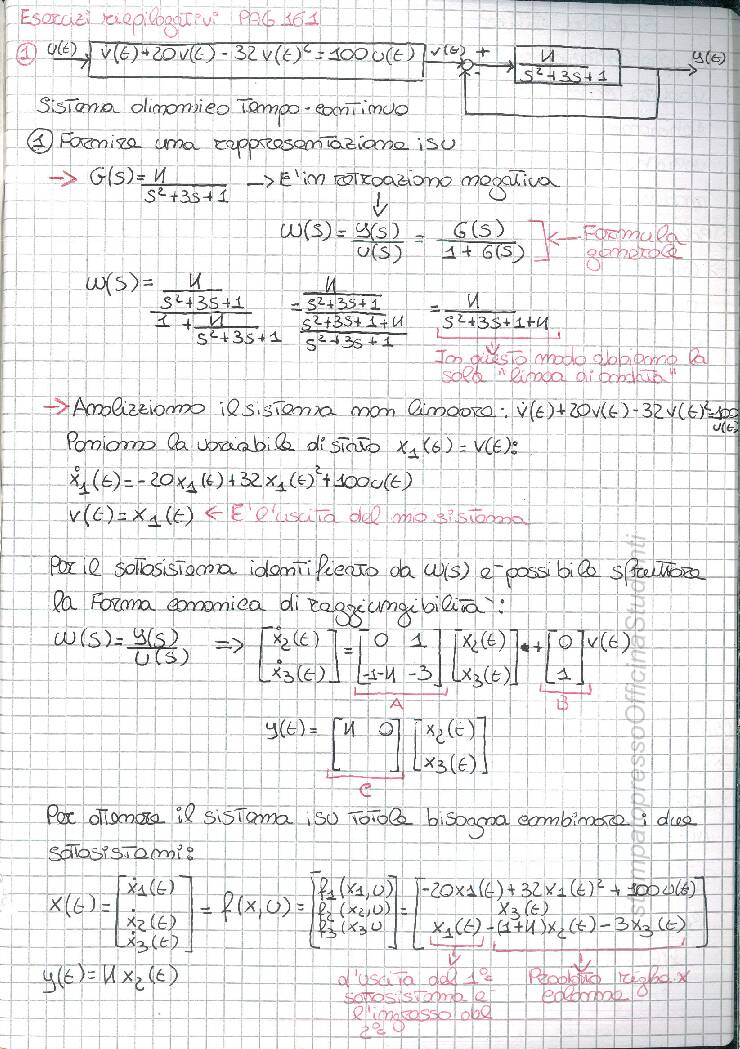 Esercizi riepilogativi PAG 161
① u(t) v̇(t)+20v(t)-32v(t)²=100u(t) v(t) + - K/(s²+3s+1) y(t)
Sistema dinamico tempo-continuo
① Fornire una rappresentazione isu
→ G(s)=K/(s²+3s+1) → E' in retroazione negativa
↓
W(s)=y(s)/U(s) = G(s)/(1+G(s)) ← Formula generale
W(s)= (K/(s²+3s+1))/(1+K/(s²+3s+1)) = (K/(s²+3s+1))/((s²+3s+1+K)/(s²+3s+1)) = K/(s²+3s+1+K)
In questo modo abbiamo la
sola "linea di andata"
→ Analizziamo il sistema non lineare: v̇(t)+20v(t)-32v(t)²=100u(t)
Poniamo la variabile di stato x₁(t)=v(t):
ẋ₁(t)=-20x₁(t)+32x₁(t)²+100u(t)
v(t)=x₁(t) ← E' l'uscita del mio sistema
Per il sottosistema identificato da W(s) e' possibile sfruttare
la Forma canonica di raggiungibilità:
W(s)=y(s)/U(s) ⇒ [ẋ₂(t) ẋ₃(t)] = [0 1 -1-K -3] [x₂(t) x₃(t)] + [0 1] v(t)
A B
y(t)=[K 0] [x₂(t) x₃(t)]
C
Per ottenere il sistema isu totale bisogna combinare i due
sottosistemi:
ẋ(t)=[ẋ₁(t) ẋ₂(t) ẋ₃(t)] = f(x,u) = [f₁(x₁,u) f₂(x₂,u) f₃(x₃u] = [-20x1(t)+32x1(t)²+100u(t) x₃(t) x₁(t)-(1+K)x₂(t)-3x₃(t)]
y(t)=Kx₂(t)
L'uscita del 1°
sottosistema e'
l'ingresso del
2°
Prodotto righa x
colonna
stampatopressoOfficinaStudenti